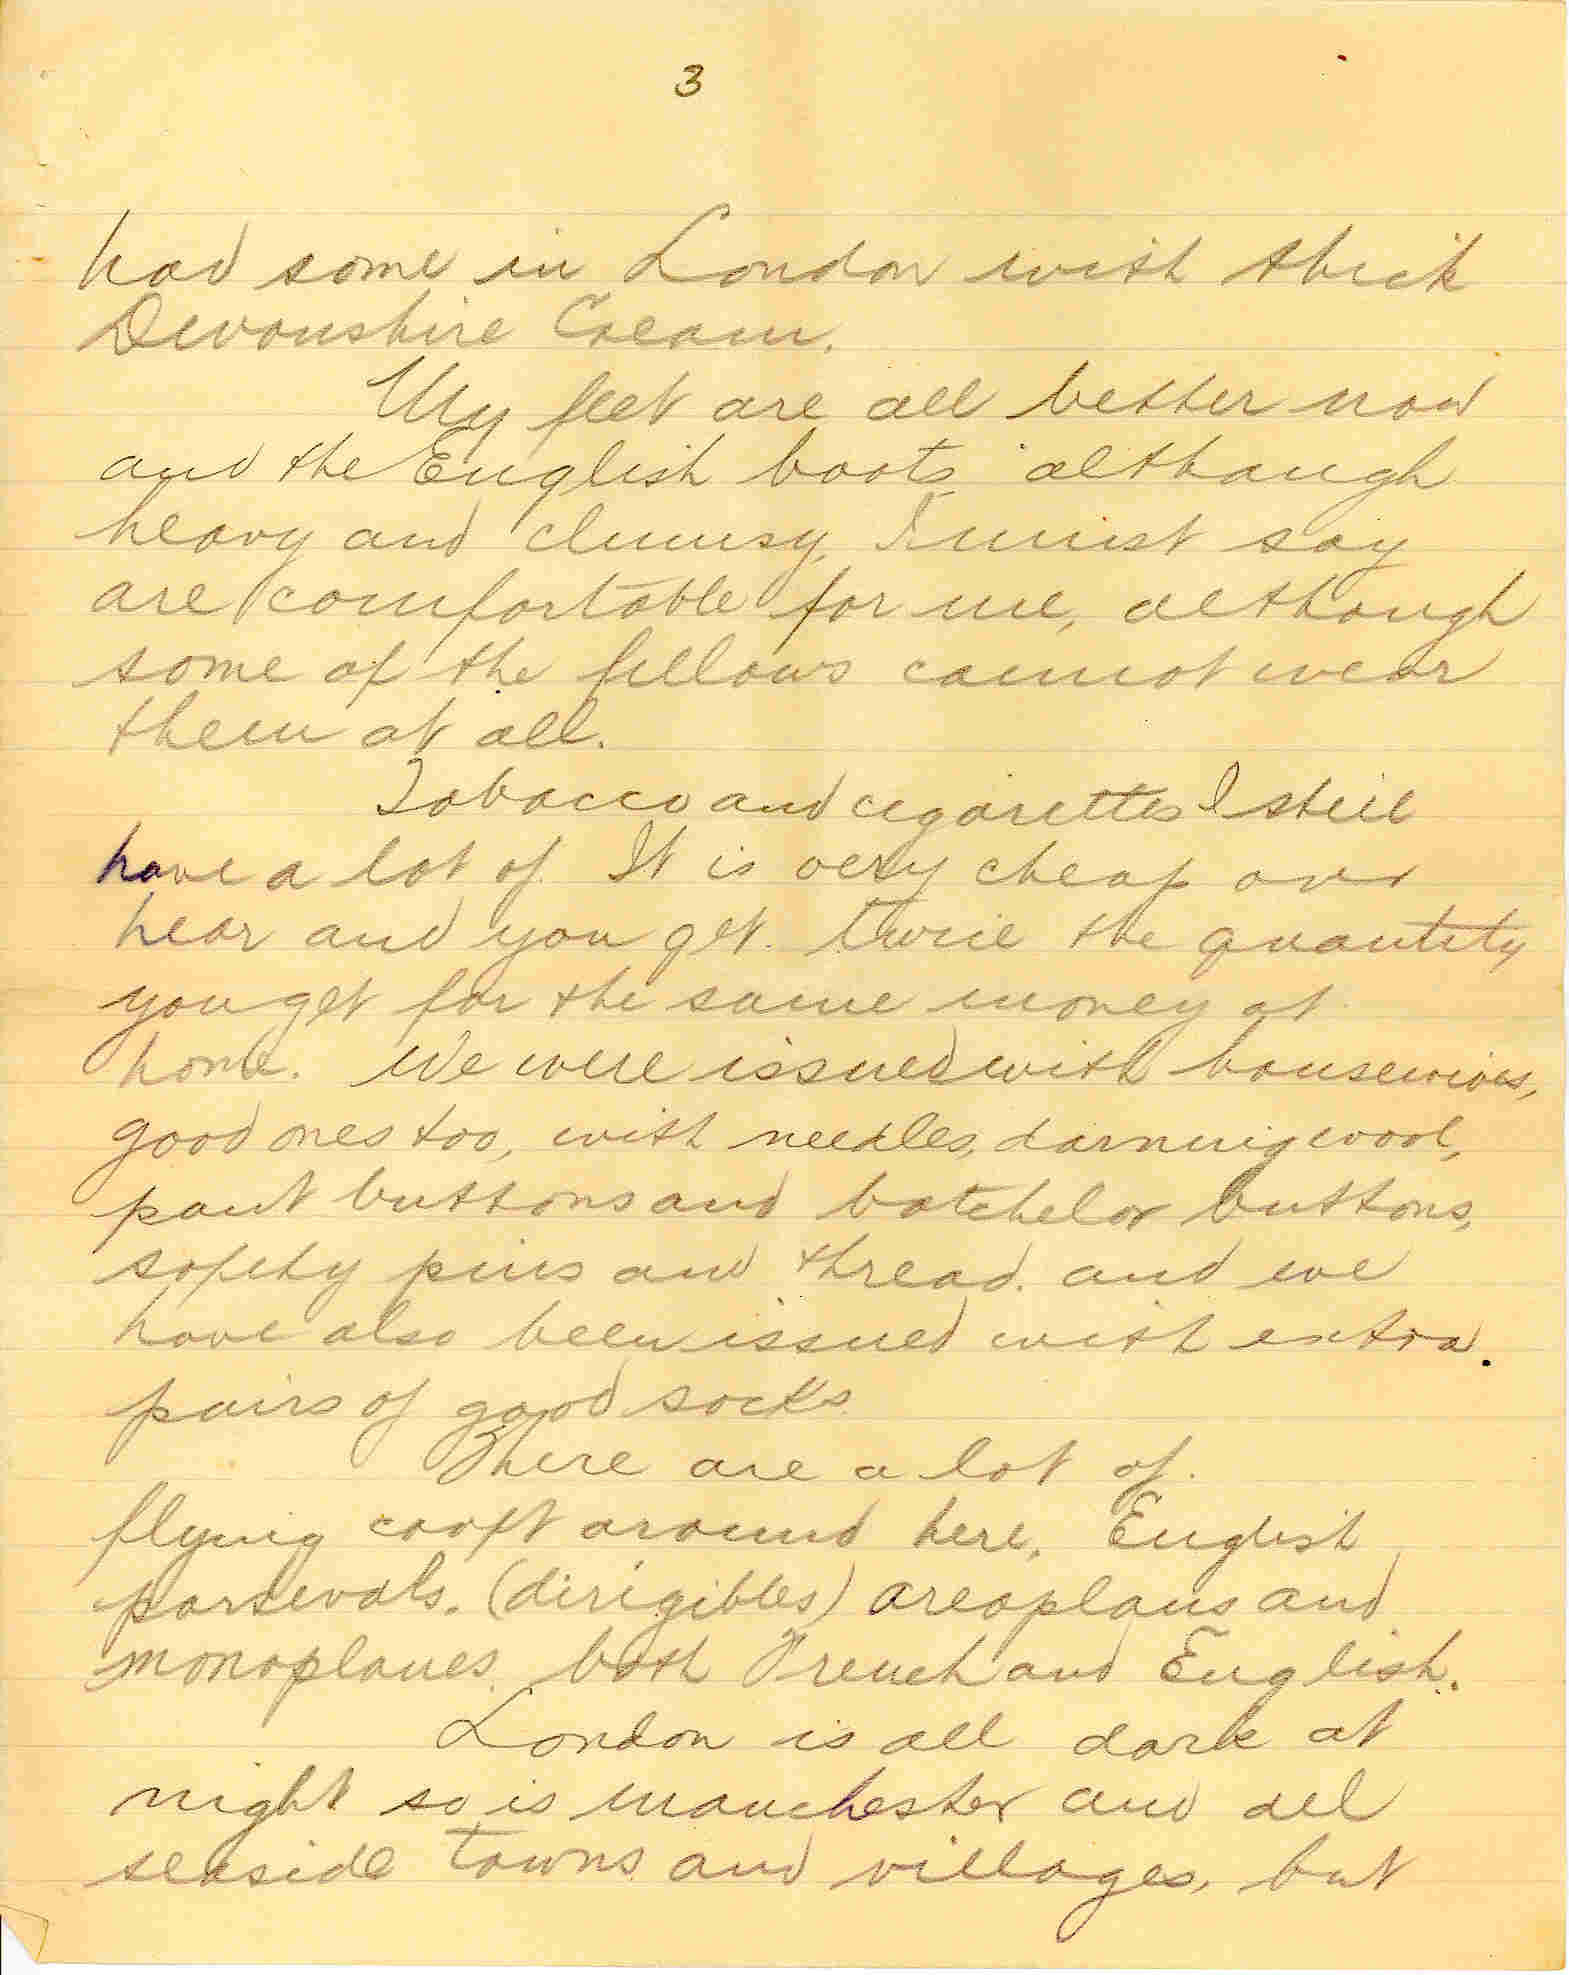 3
had some in London with thick
Devonshire Cream.
My feet are all better now
and the English boots although
heavy and clumsy, I must say
are comfortable for me, although
some of the fellows cannot wear
them at all.
Tobacco and cigarettes I still
have a lot of. It is very cheap over
hear and you get twice the quantity
you get for the same money at
home. We were issued with housewives,
good ones too, with needles, darning wool,
pant buttons and batchelor buttons,
safety pins and thread. and we
have also been issued with extra
pairs of good socks
There are a lot of
flying craft around here, English
parsevals. (dirigibles) areoplans and
monoplanes, both French and English.
London is all dark at
night so is manchester and all
seaside towns and villages, but